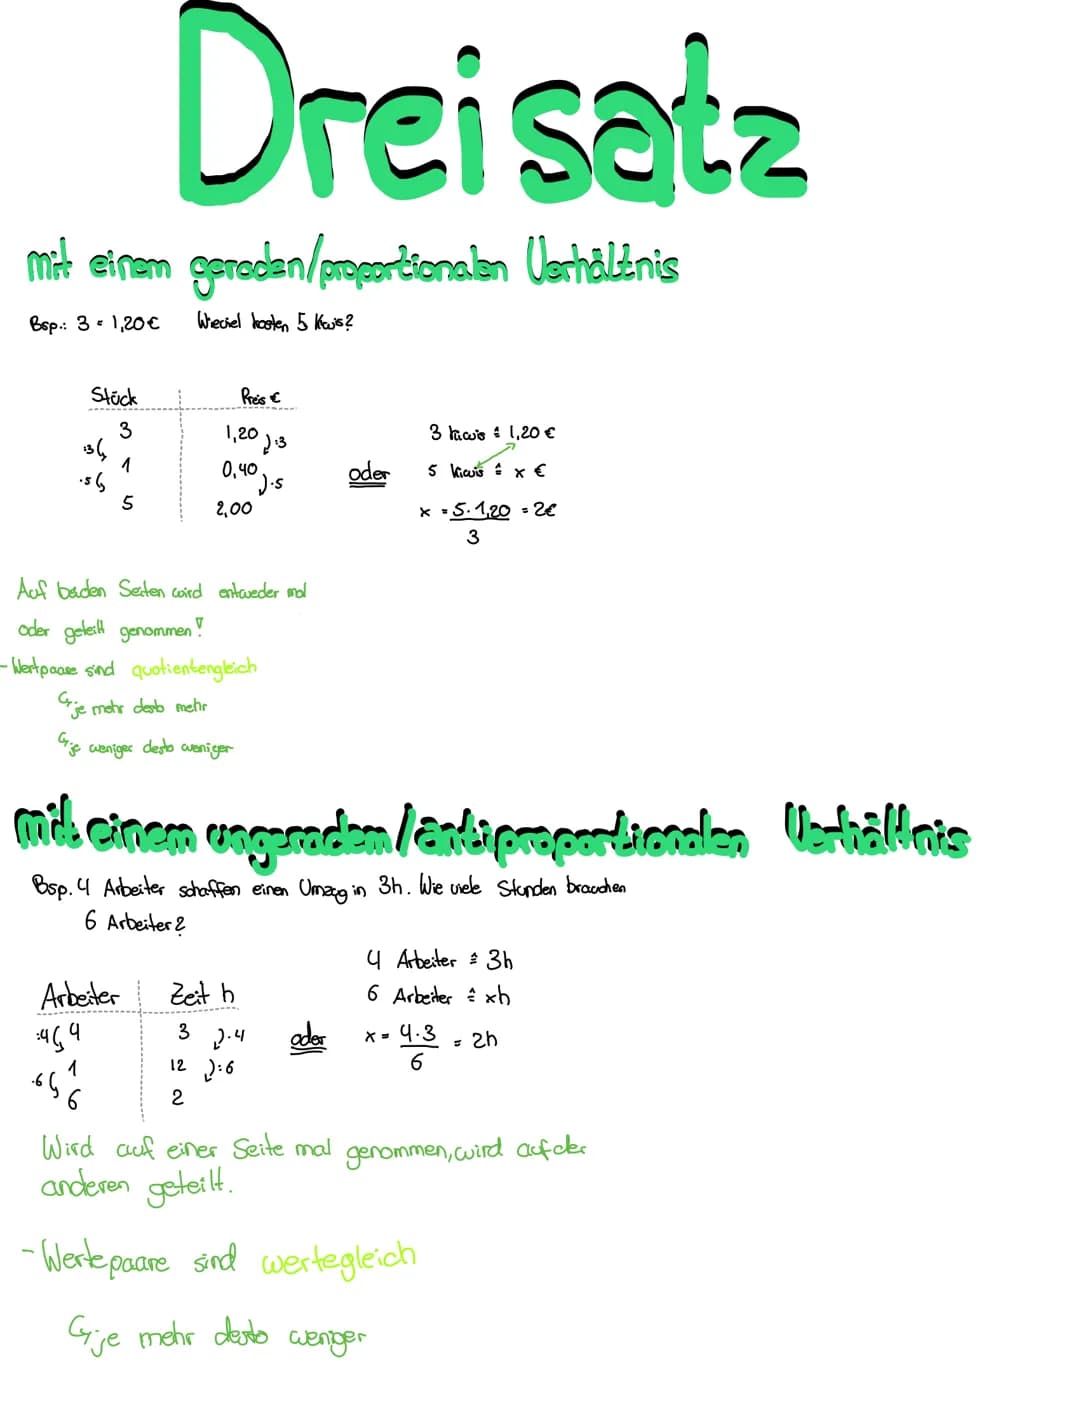 Dreisatz
mit einem geraden/proportionalen Verhältnis
Bsp.: 3 = 1,20€ Wieviel kosten 5 Kiwis?
Stück Preis €
:3 3 1,20 :3
·5 1 0,40 ·5
5 2,00
oder
3 kiwis ≙ 1,20 €
5 Kiwis ≙ x €
x = 5·1,20 = 2€
3
Auf beiden Seiten wird entweder mal
oder geteilt genommen!
- Wertpaare sind quotientengleich
↳ je mehr desto mehr
↳ je weniger desto weniger
mit einem ungeradem/antiproportionalen Verhältnis
Bsp. 4 Arbeiter schaffen einen Umzug in 3h. Wie viele Stunden brauchen
6 Arbeiter?
Arbeiter Zeit h
:4 4 3 ·4
·6 1 12 :6
6 2
oder
4 Arbeiter ≙ 3h
6 Arbeiter ≙ xh
x = 4·3 = 2h
6
Wird auf einer Seite mal genommen, wird auf der
anderen geteilt.
- Wertepaare sind wertegleich
↳ je mehr desto weniger